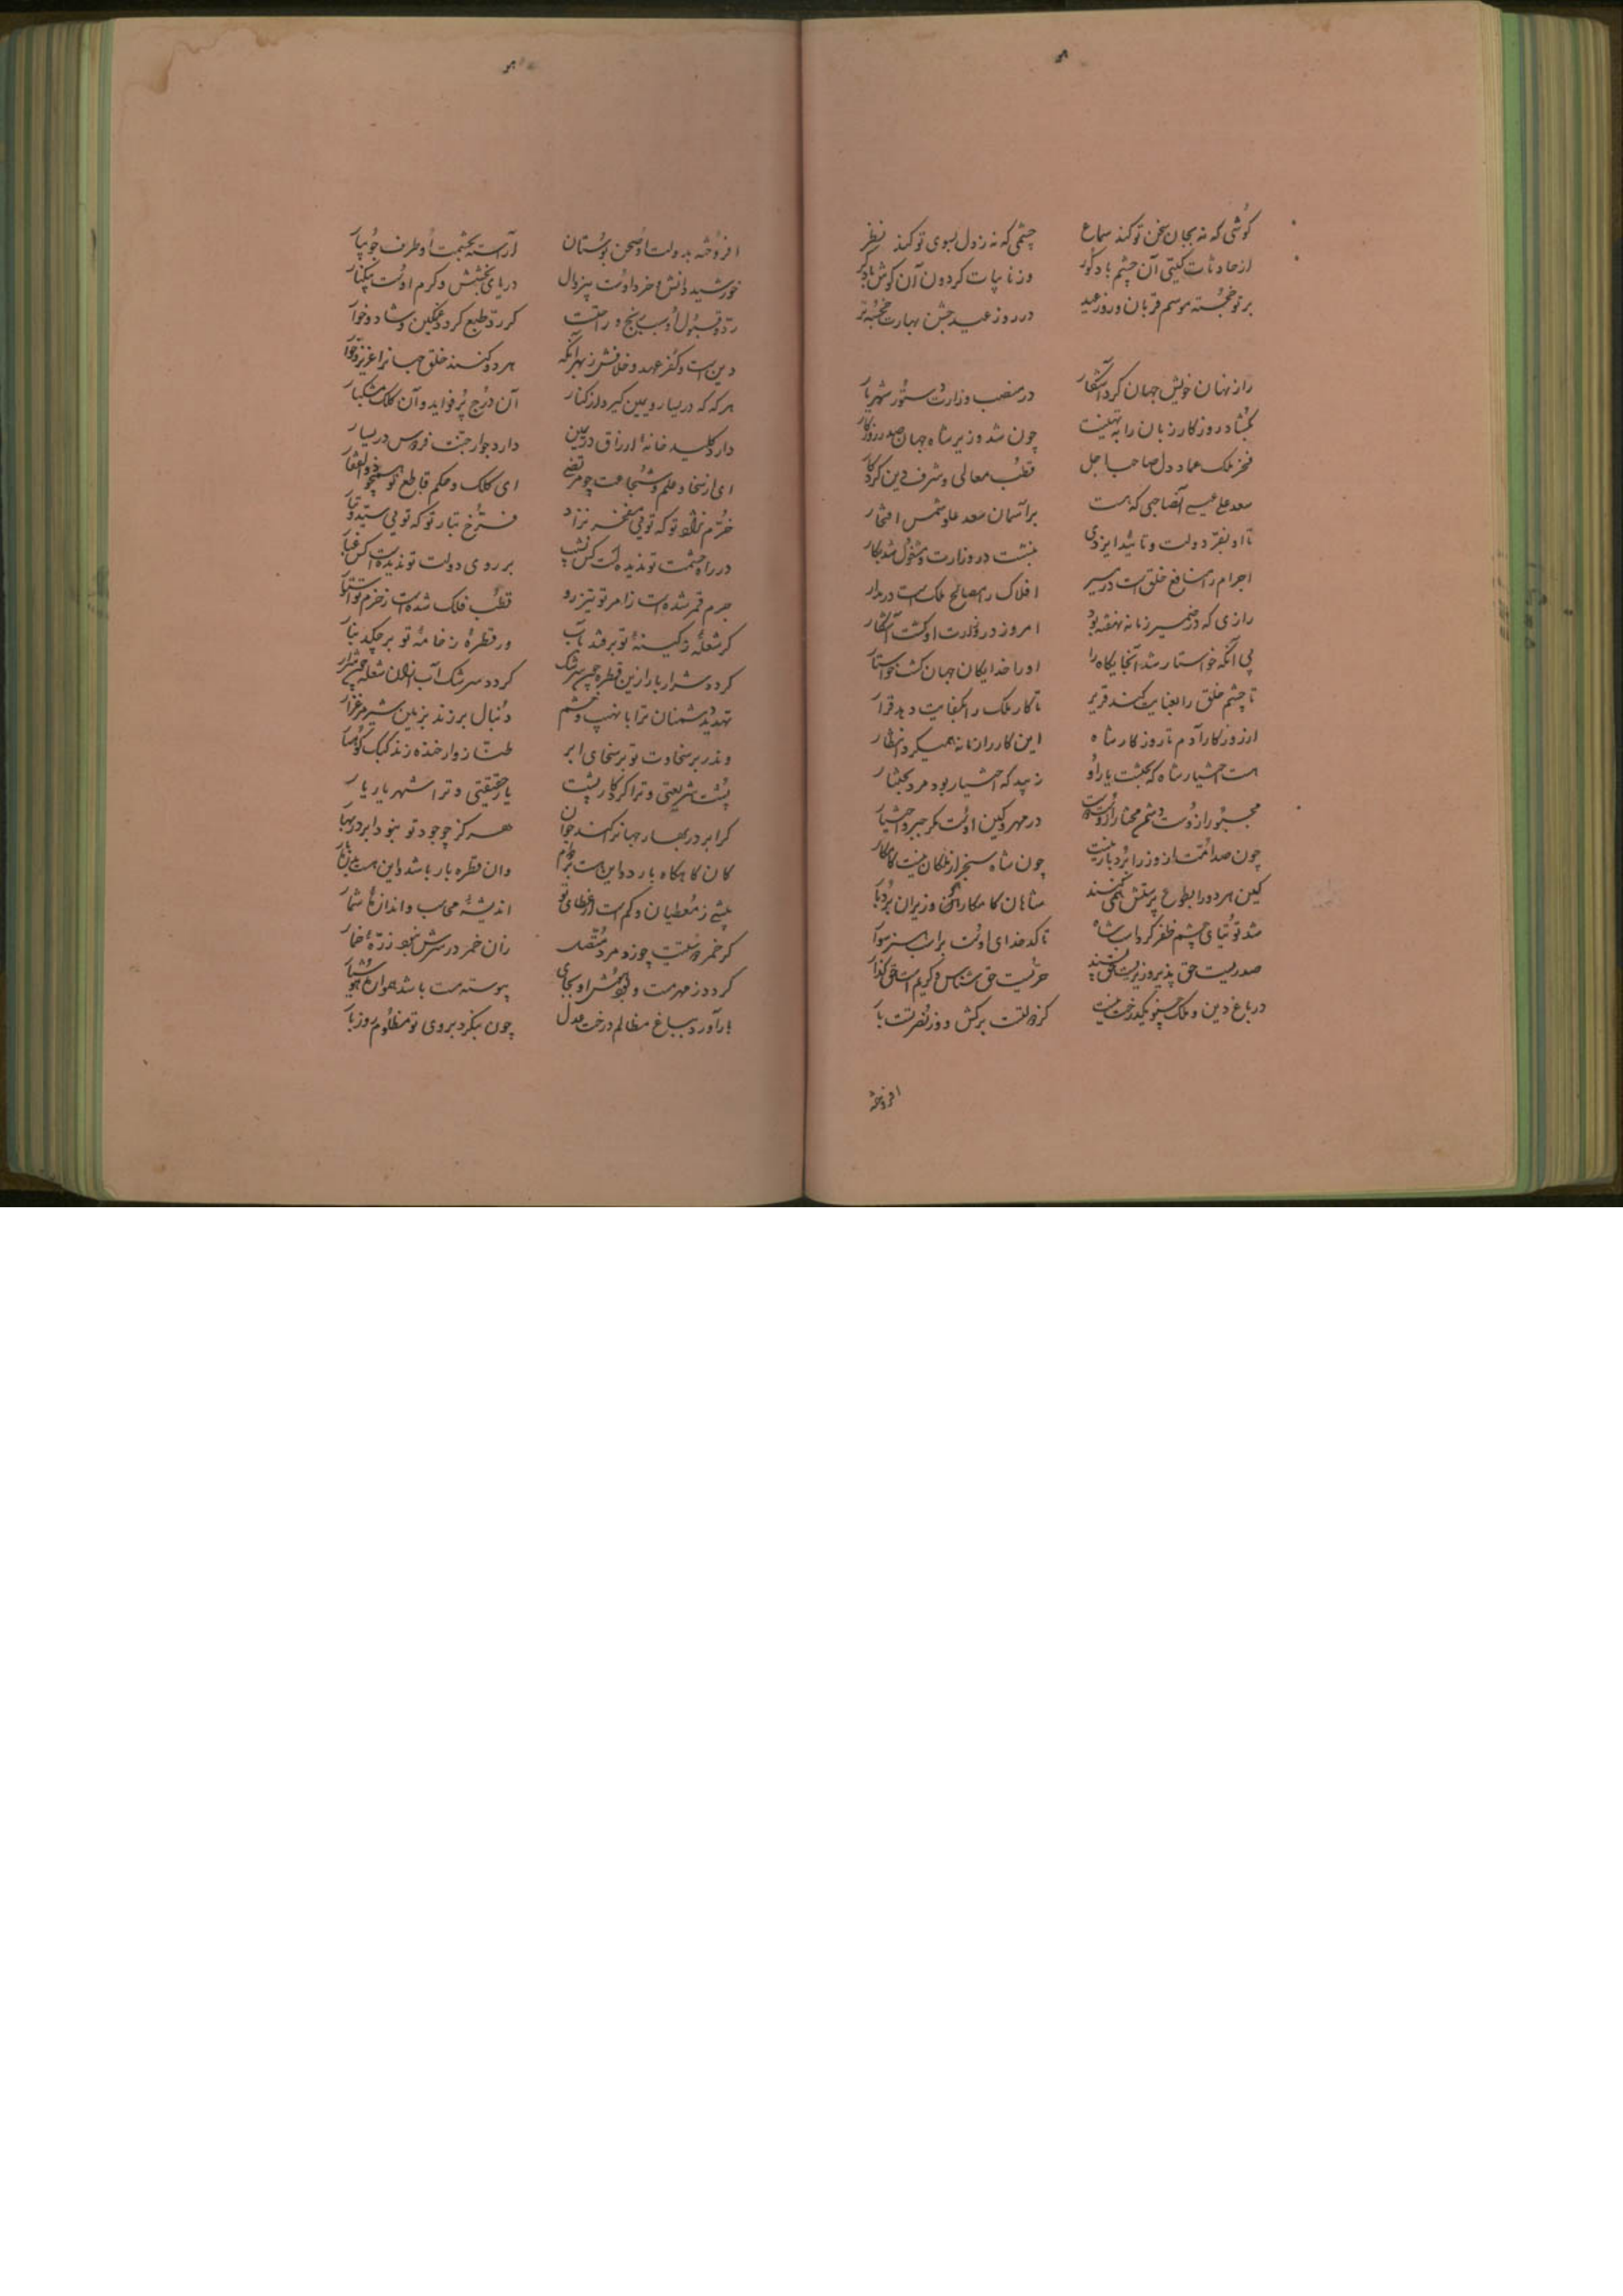 گوشی که نه بجان سخن تو کند سماع چشمی که نه ز دل بسوی تو کند نظر
از حادثات گیتی آن چشم باد کور وز نایبات کردون آن کوش باد کر
بر تو خجسته موسم قربان و روز عید در روز عید جشن بهارت خجسته تر
راز نهان خویش جهان کرد آشکار در منصب وزارت دستور شهریار
بکشاد روزکار زبان را به تهنیت چون شد وزیر شاه جهان صدر روزکار
فخر ملک عماد دول صاحب اجل قطب معالی و شرف دین کردکار
سعد علی عیسی آنصاحبی که هست بر آسمان سعد علو شمس افتخار
تا او بفر دولت و تائید ایزدی بنشست در وزارت و مشغول شد بکار
اجرام را منافع خلق است در مسیر افلاک را مصالح ملک است در مدار
رازی که در ضمیر زمانه نهفته بود امروز در وزارت او کشت آشکار
بی آنکه خواستار شد آنجایکاه را او را خدایکان جهان کشت خواستار
تا چشم خلق را بعنایت کند قریر تا کار ملک را بکفایت دهد قرار
از روزکار آدم تا روزکار شاه این کار را زمانه همیکرد انتظار
هست اختیار شاه که بختست یار او زیبد که اختیار بود مرد بختیار
مجبور از دوست دشمن مختار از دوست دوست در مهر و کین اوست مکر جبر و اختیار
چون صد امتست از وزرا بردبار نیست چون شاه سنجر از ملکان نیست کامکار
کین هر دو را بطوع پرستش همی کنند شاهان کامکار و وزیران بردبار
شد توتیای چشم ظفر کرد اسب شاه تا کدخدای اوست براسب هنر سوار
صدریست حق پذیر و وزیریست حق پسند حریست حق شناس و کریم است حق کذار
در باغ دین و ملک چنو یکدرخت نیست کز دولتست برکش و وز نصرتست بار
افروخته
افروخته بدولت او صحن بوستان آراسته بحشمت او طرف جویبار
خورشید دانش و خرد اوست بیزوال دریای بخشش و کرم اوست بیکنار
رد و قبول او سبب رنج و راحتست کز رد طبع کردد غمکین و شاد و خوار
دین است و کفر عهد و خلافش ز بهر آنکه هر دو کنند خلق جهانرا عزیز و خوار
هر که که در یسار و یمین کیرد از کنار آن درج پر فواید و آن کلک مشکبار
دارد کلید خانه ارزاق در یمین دارد جوار جنت فردوس در یسار
ای از سخا و علم و شجاعت چو مرتضی ای کلک و حکم قاطع تو همچو ذوالفقار
خرم نژاد تو که توئی مفخر نژاد فرخ تبار تو که توئی سید تبار
در راه حشمت تو ندیده است کس نشیب بر روی دولت تو ندیدست کس غبار
جرم قمر شده است ز امر تو تیز رو قطب فلک شده است ز حزم تو استوار
کر شعلهٔ ز کینهٔ تو بر فتد بآب ور قطرهٔ ز خامهٔ تو بر چکد بنار
کردد شرار بار ازین قطره چون سرشک کردد سرشک آب از آن شعله چون شرار
تهدید دشمنان ترا با نهیب و خشم دنبال بر زند بزمین شیر مرغزار
وندر بر سخاوت تو بر سخای ابر طناز وار خنده زند کبک کوهسار
پشت شریعتی و ترا کردکار پشت یار حقیقتی و ترا شهریار یار
کر ابر در بهار جهانرا کند جوان هرکز چو جود تو نبود ابر در بهار
کان کاهکاه بارد و این هست بر دوام وان قطره بار باشد و این هست بدره بار
بیشی ز معطیان و کم است از عطای تو اندیشهٔ محاسب و اندازهٔ شمار
کر خمر دولتست چو زو مرد متصل زان خمر در سرش نبود ذرهٔ خمار
کردد ز مهر مست و بود هش او بجای پیوسته مست باشد همواره هوشیار
بار آورد بباغ مظالم درخت عدل چون بنکرد بروی تو مظلوم روز بار